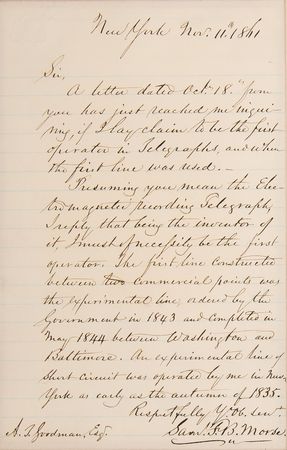 New York Nov. 11th 1861
Sir,
A letter dated Oct. 18th from
you has just reached me inqui-
ring, if I lay claim to be the first
operator in Telegraphs, and when
the first line was used. —
Presuming you mean the Elec-
tro magnetic recording Telegraph,
I reply that being the inventor of
it, I must of necessity be the first
operator. The first line constructed
between two commercial points was
the experimental line, ordered by the
Government in 1843 and completed in
May 1844 between Washington and
Baltimore. An experimental line of
short circuit was operated by me in New
York as early as the autumn of 1835.
Respectfully Yr. Ob. Serv.
Saml. F. B. Morse.
A. T. Goodman, Esq.